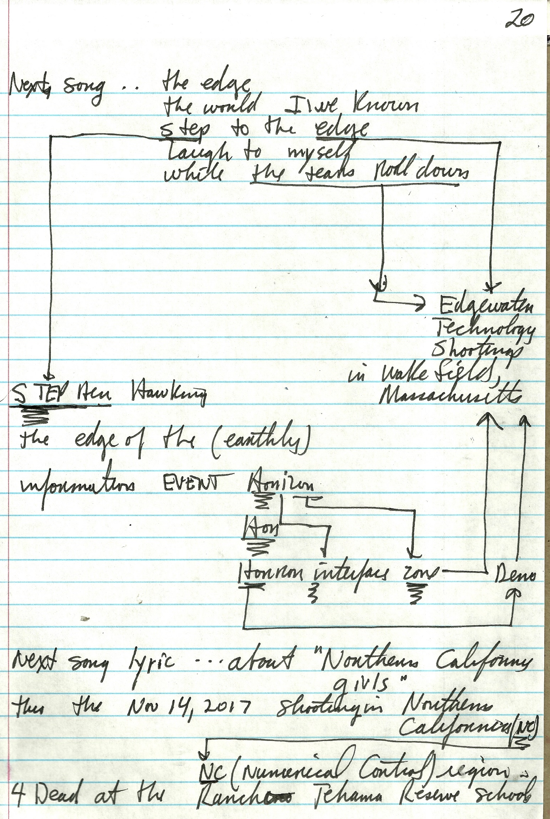 20
Next song .. the edge
the would I've known
step to the edge
laugh to myself
while the tears Roll down
Edgewater
Technology
Shootings
in Wakefield,
Massachusetts
STEPHen Hawking
the edge of the (earthly)
information EVENT Horizon
Hor
Horizon interface zone
Next song lyric ... about "Northern Californy
girls"
thus the Nov 14, 2017 shooting in Northern
California (NC)
NC (Numerical Control) region ..
4 Dead at the Rancho Tehama Reserve school